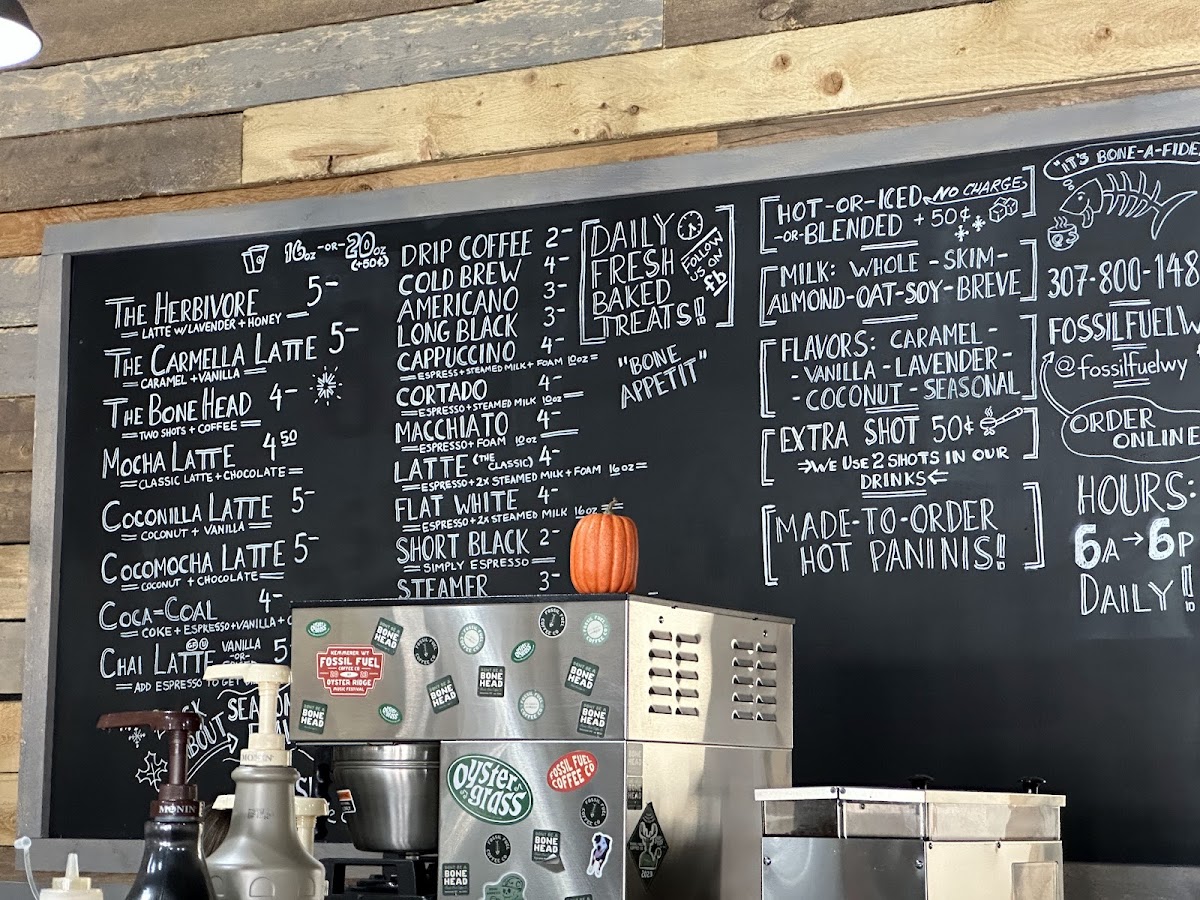 16oz -OR- 20oz
(+50¢)
THE HERBIVORE 5-
LATTE W/LAVENDER + HONEY
THE CARMELLA LATTE 5-
CARAMEL + VANILLA
THE BONE HEAD 4-
TWO SHOTS + COFFEE
MOCHA LATTE 4 50
CLASSIC LATTE + CHOCOLATE
COCONILLA LATTE 5-
COCONUT + VANILLA
COCOMOCHA LATTE 5-
COCONUT + CHOCOLATE
COCA=COAL 4-
COKE + ESPRESSO + VANILLA +
CHAI LATTE VANILLA 5
-OR-
ADD ESPRESSO TO GET
ABOUT
DRIP COFFEE 2-
COLD BREW 4-
AMERICANO 3-
LONG BLACK 3-
CAPPUCCINO 4-
ESPRESS + STEAMED MILK + FOAM 10oz
CORTADO 4-
ESPRESSO + STEAMED MILK 10oz
MACCHIATO 4-
ESPRESSO + FOAM 10oz
LATTE (THE CLASSIC) 4-
ESPRESSO + 2X STEAMED MILK + FOAM 16oz
FLAT WHITE 4-
ESPRESSO + 2X STEAMED MILK 16oz
SHORT BLACK 2-
SIMPLY ESPRESSO
STEAMER 3-
DAILY
FRESH
BAKED
TREATS!
FOLLOW
US ON
fb
"BONE
APPETIT"
HOT-OR-ICED NO CHARGE
-OR-BLENDED +50¢
MILK: WHOLE -SKIM-
ALMOND-OAT-SOY-BREVE
FLAVORS: CARAMEL -
- VANILLA - LAVENDER -
- COCONUT - SEASONAL
EXTRA SHOT 50¢
→WE USE 2 SHOTS IN OUR
DRINKS←
MADE-TO-ORDER
HOT PANINIS!
"IT'S BONE-A-FIDE
307-800-148
FOSSILFUELW
@fossilfuelwy
ORDER
ONLINE
HOURS:
6A→6P
DAILY!
KEMMERER, WY
FOSSIL FUEL
COFFEE CO
OYSTER RIDGE
MUSIC FESTIVAL
BONE
HEAD
BONE
HEAD
BONE
HEAD
BONE
HEAD
BONE
HEAD
BONE
HEAD
Oyster
grass
FOSSIL FUEL
COFFEE CO
BONE
HEAD
BONE
HEAD
MONIN
MONIN